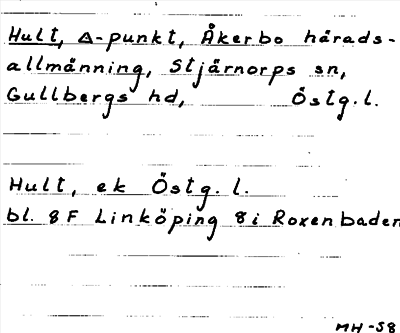 Hult, Δ-punkt, Åkerbo härads-
allmänning, Stjärnorps sn,
Gullbergs hd, Östg.l.
Hult, ek Östg.l.
bl. 8F Linköping 8i Roxenbaden
MH-58